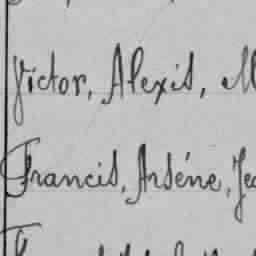 Victor, Alexis,
Francis, Arsène,